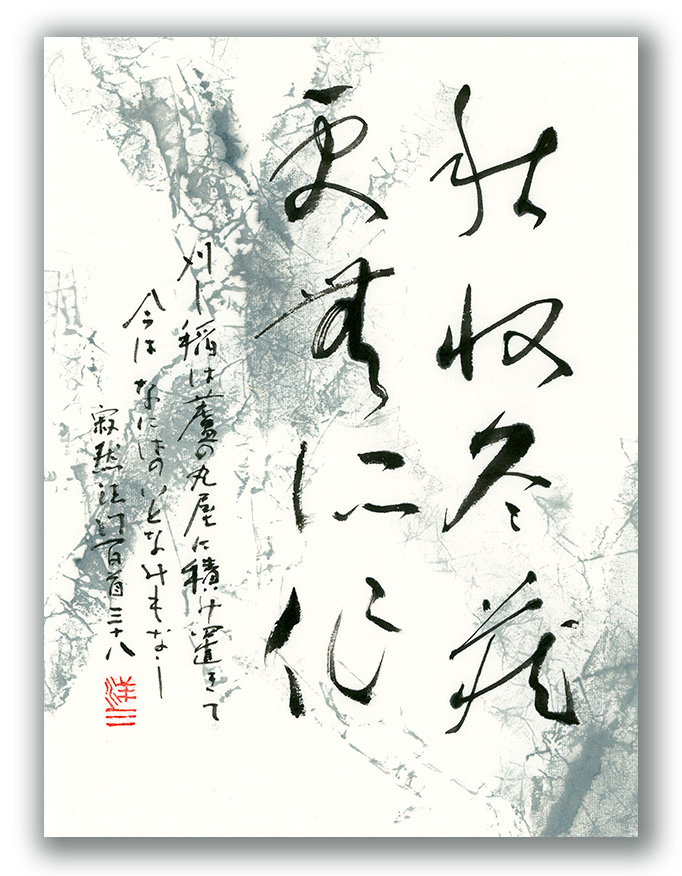 秋収冬蔵
更無所作
刈し稲は蘆の丸屋に積み置きて
今はなにはのいとなみもなし
寂然法門百首三十八